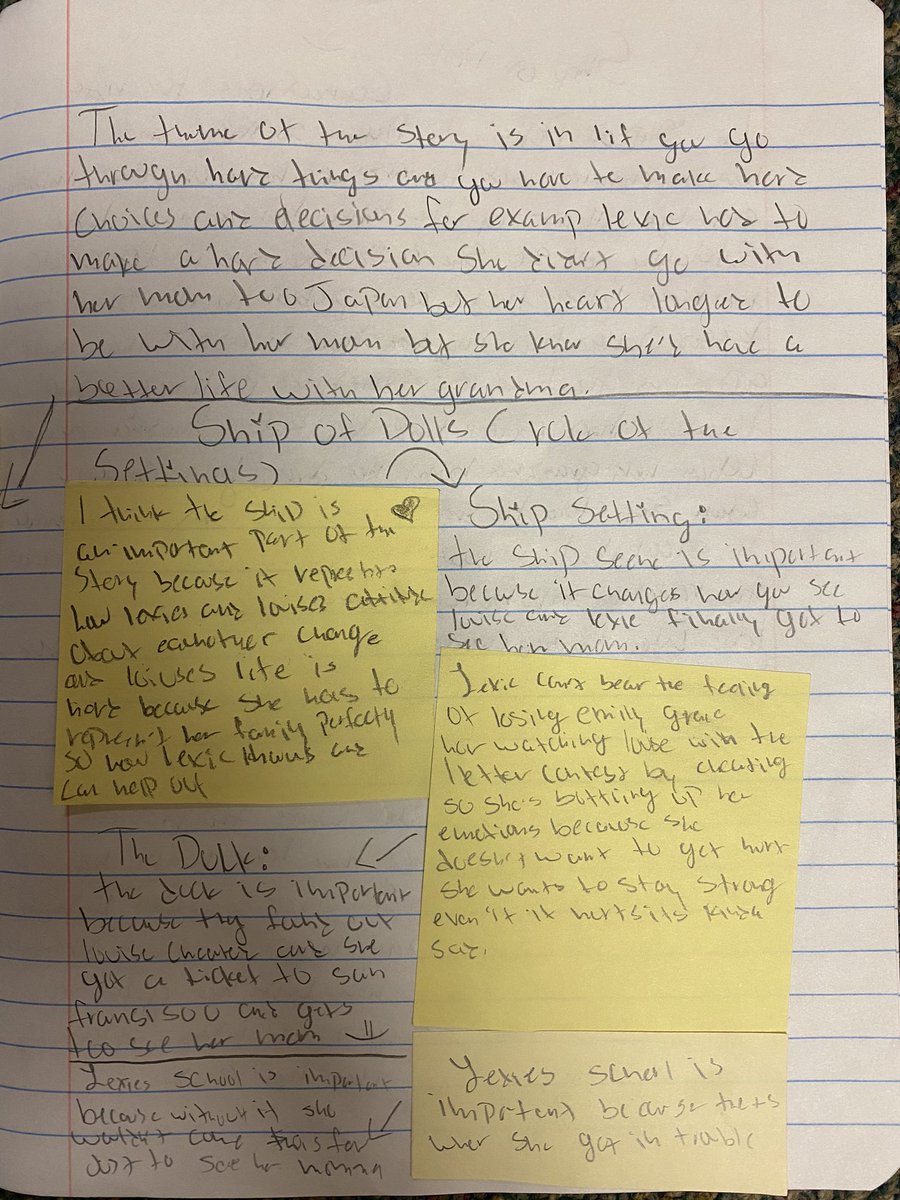 The theme of the story is in lif you go
through hard things and you have to make hard
choices and decisions for examp lexie had to
make a hard decision she didnt go with
her mom too Japan but her heart longed to
be with her mom but she knew she'd have a
better life with her grandma.
Ship of Dolls Circle of the
Settings)
I think the ship is
an important part of the
story because it
how lexies and louises
about eachother change
and louises life is
hard because she has to
her family perfectly
so now lexie knows and
can help out
Ship Setting:
the ship scene is important
because it changes how you see
louise and lexie finally got to
see her mom.
Lexie cant bear the feeling
of losing emily grace
her watching with the
letter contest by cheating
so she's her
emotions because she
want to get hurt
she wants to stay strong
even if it hurts its kinda
sad.
The Dock:
the dock is important
because they found out
louise cheated and she
got a ticket to san
and gets
too see her mom
Lexies school is important
because without it she
come this far
just to see her momma
Lexies school is
because thats
she got in